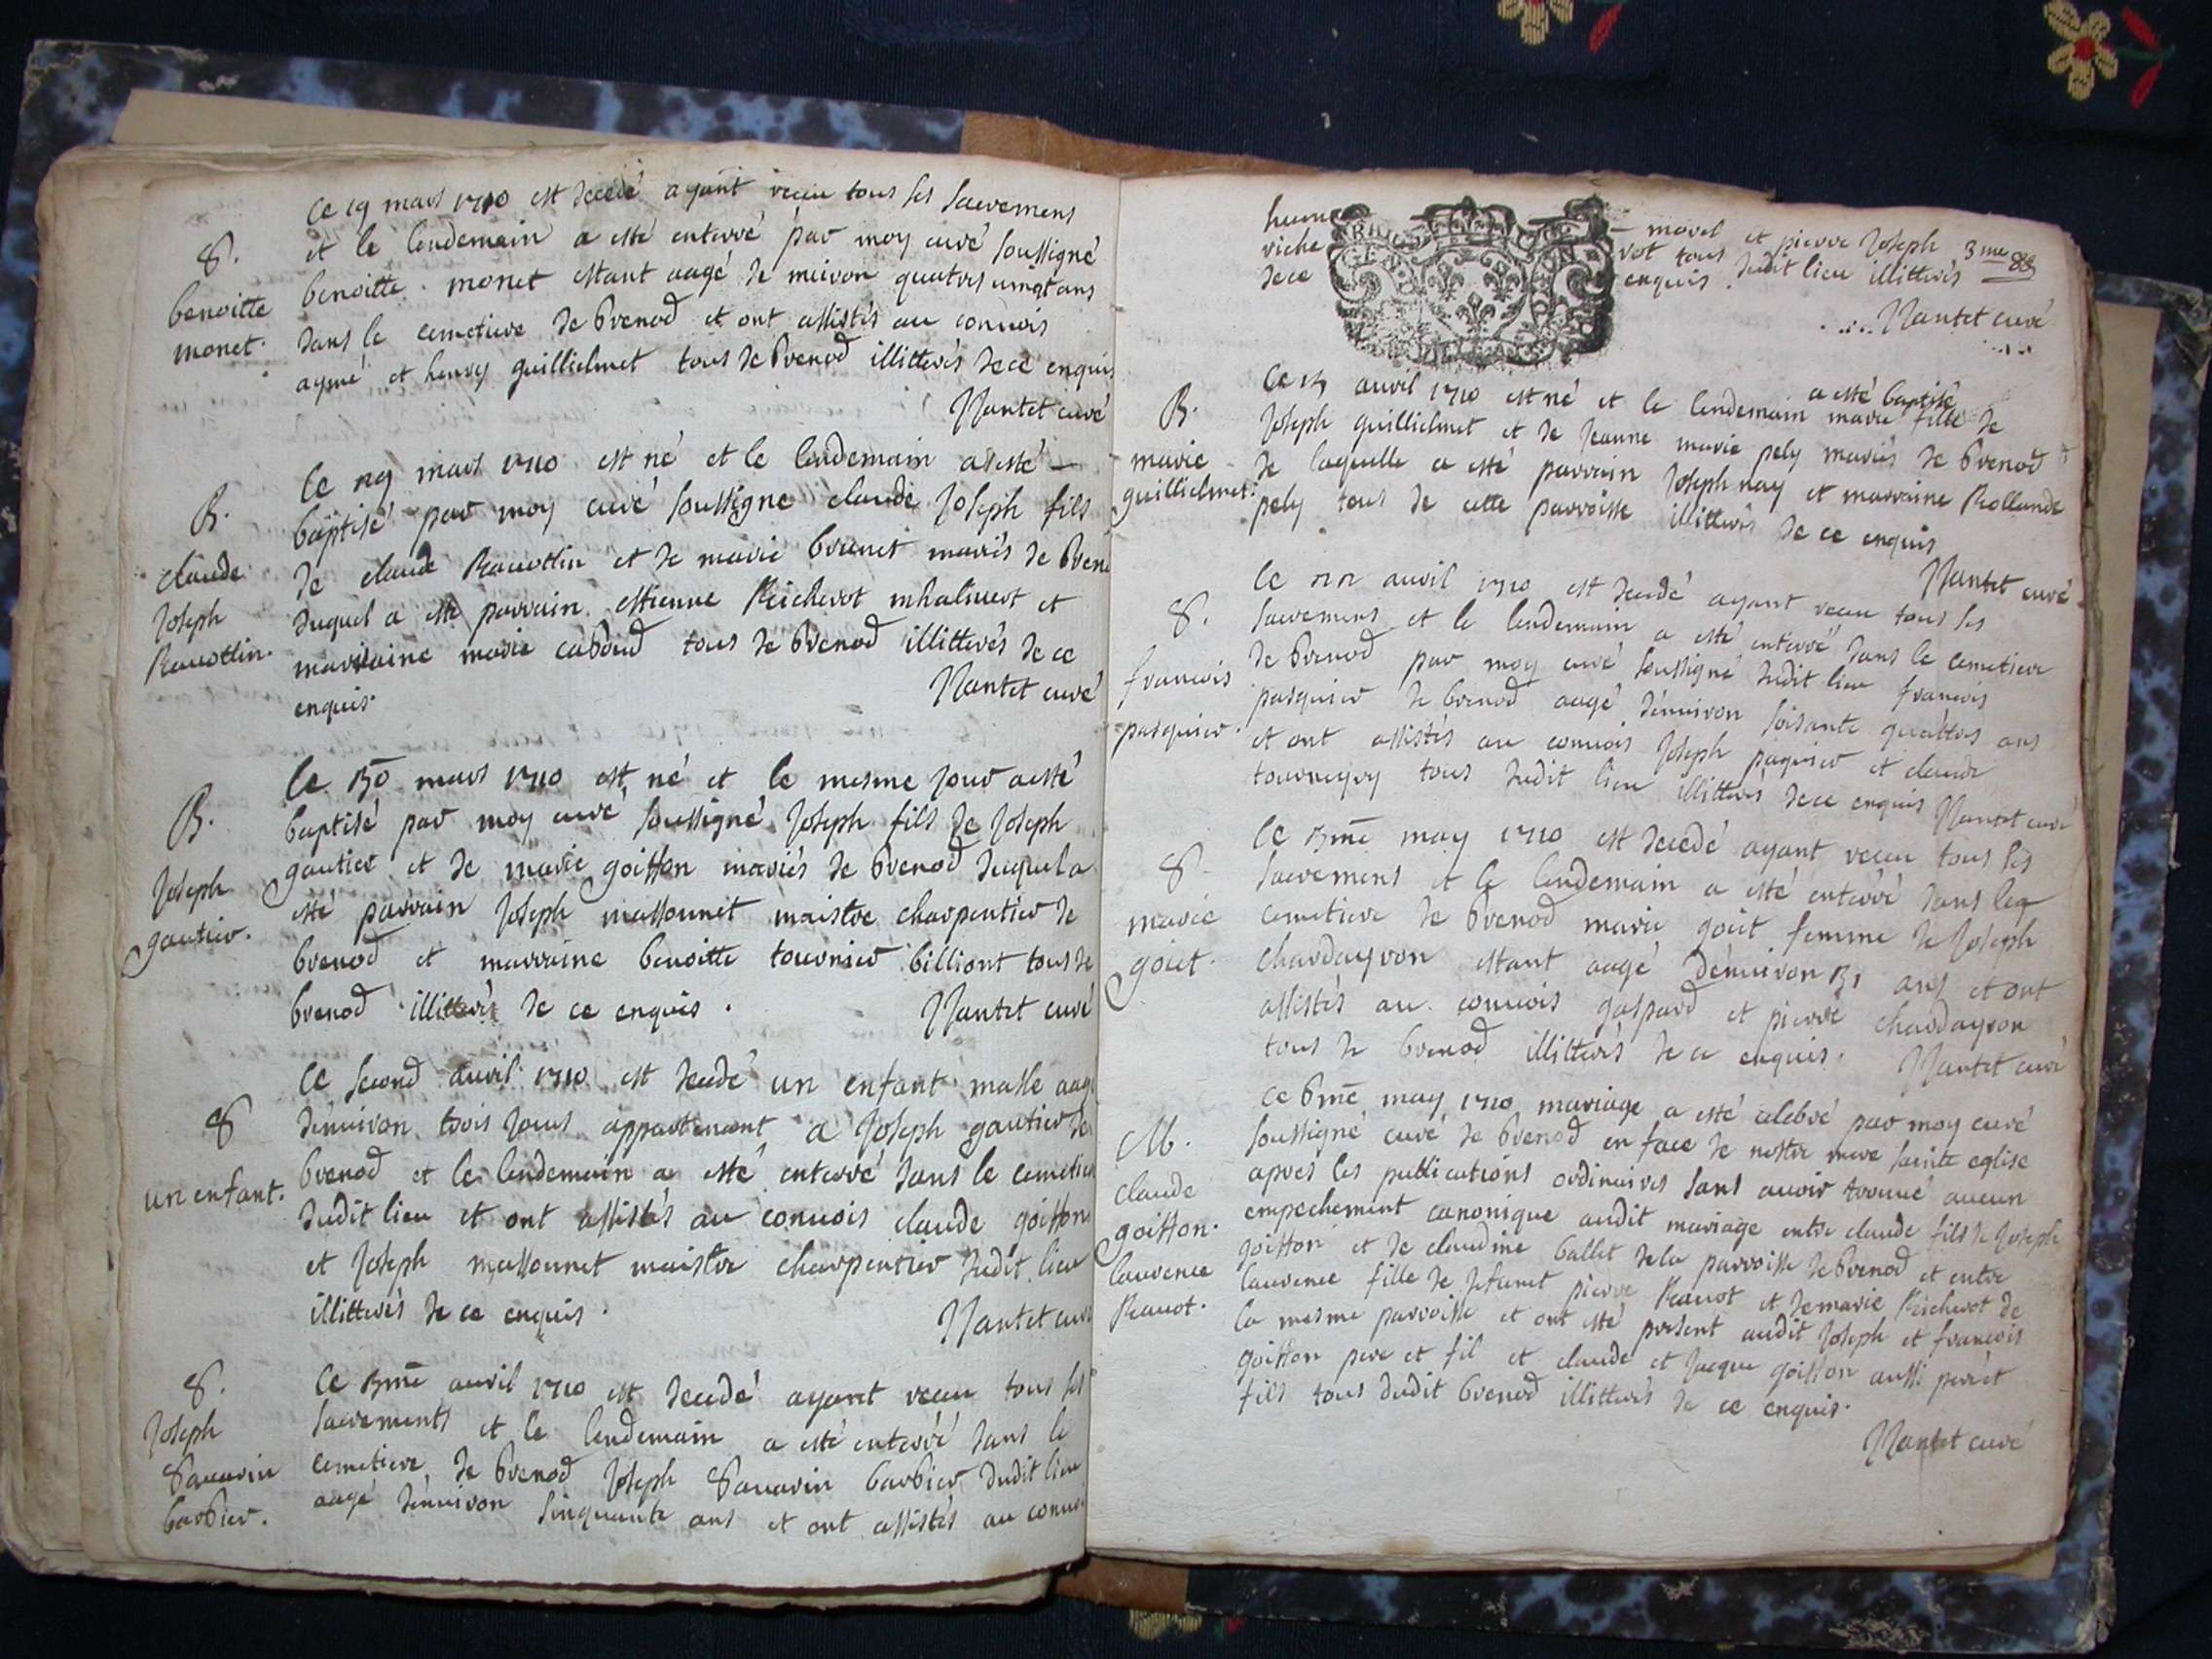 Ce 19 mars 1710 est decedé ayant receu tous les sacremens
et le lendemain a esté enterré par moy curé soussigné
benoitte monet estant aagé de quatres vingt ans
dans le cemetiere de brenod et ont assistés au convois
aymé et henry guillielmet tous de brenod illitterés de ce enquis
Nantet curé
S.
benoitte
monet.
Ce 29 mars 1710 est né et le lendemain a esté
baptisé par moy curé soussigné claude Joseph fils
de claude Ravottin et de marie brunet mariés de bren
duquel a esté parrain estienne Reicherot et
marraine marie caboud tous de brenod illitterés de ce
enquis.
Nantet curé
B.
claude
Joseph
Ravottin.
Ce 30 mars 1710 est né et le mesme jour a esté
baptisé par moy curé soussigné Joseph fils de Joseph
gautier et de marie goiffon mariés de brenod duquel a
esté parrain Joseph massonnet maistre charpentier de
brenod et marraine benoitte tournier billiont tous de
brenod illitterés de ce enquis.
Nantet curé
B.
Joseph
gautier.
Ce second avril 1710 est decedé un enfant masle aagé
d'environ trois jours appartenant a Joseph gautier de
brenod et le lendemain a esté enterré dans le cemetiere
dudit lieu et ont assistés au convois claude goiffon
et Joseph massonnet maistre charpentier dudit lieu
illitterés de ce enquis.
Nantet curé
S
un enfant.
Ce 3me avril 1710 est decedé ayant receu tous les
sacrements et le lendemain a esté enterré dans le
cemetiere de brenod Joseph Savarin barbier dudit lieu
aagé d'environ sinquante ans et ont assistés au convoi
S.
Joseph
Savarin
barbier.
morel et pierre Joseph 3me
riche rot tous dudit lieu illitterés
de ce enquis.
Nantet curé
Ce 13 avril 1710 est né et le lendemain a esté baptisé marie fille de
Joseph guillielmet et de Jeanne marie pely mariés de brenod
de laquelle a esté parrain Joseph nay et marraine Rollande
pely tous de cette parroisse illitterés de ce enquis
Nantet curé
B.
marie
guillielmet.
Ce 22 avril 1710 est decedé ayant receu tous les
sacremens et le lendemain a esté enterré dans le cemetiere
de brenod par moy curé soussigné dudit lieu francois
pasquier de brenod aagé d'environ soisante quattres ans
et ont assistés au convois Joseph paquier et claude
tous dudit lieu illitterés de ce enquis Nantet curé
S.
francois
pasquier.
Ce 3me may 1710 est decedé ayant receu tous les
sacremens et le lendemain a esté enterré dans le
cemetiere de brenod marie goiet femme de Joseph
chardayron estant aagé d'environ 31 ans et ont
assistés au convois gaspard et pierre chardayron
tous de brenod illitterés de ce enquis. Nantet curé
S
marie
goiet.
Ce 6me may 1710 mariage a esté celebré par moy curé
soussigné curé de brenod en face de nostre mere sainte eglise
apres les publications ordinaires sans avoir trouvé aucun
empechement canonique audit mariage entre claude fils de Joseph
goiffon et de claudine ballet de la parroisse de brenod et entre
laurence fille de defunet pierre Ravot et de marie Reicherot de
la mesme parroisse et ont esté present audit Joseph et francois
goiffon pere et fil et claude et Jacque goiffon aussi pere et
fils tous dudit brenod illitterés de ce enquis.
Nantet curé
M.
claude
goiffon.
laurence
Ravot.